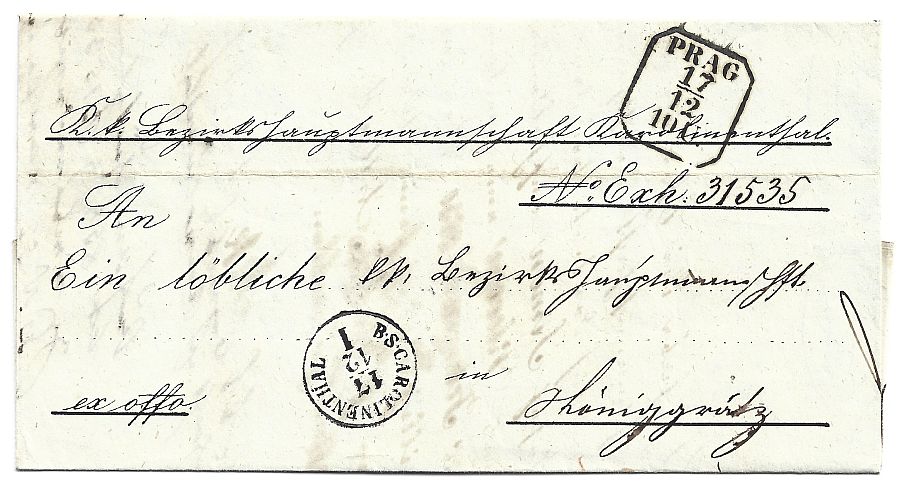 PRAG
17
12
10
K. k. Bezirkshauptmannschaft Karolinenthal.
No. Exh. 31535
An
Ein löbliche kk. Bezirkshauptmannschft
B.S.CAROLINENTHAL
I
12
17
in
ex offo
Königgrätz